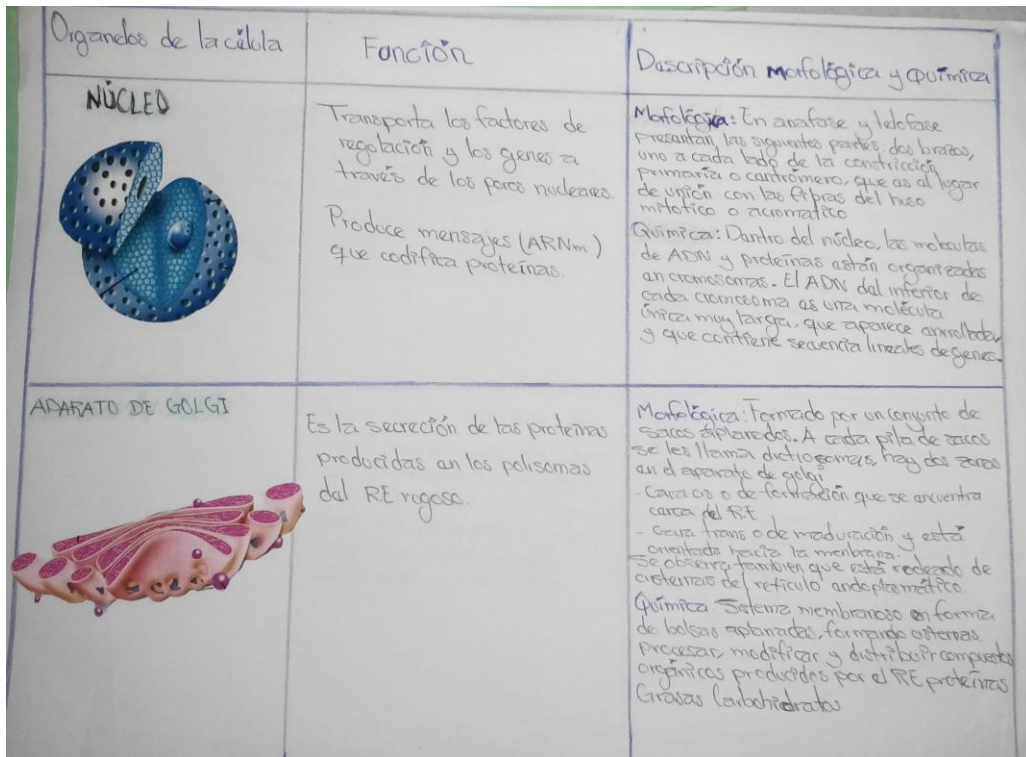 Organelos de la célula
Función
Descripción Morfológica y Química
NÚCLEO
Transporta los factores de
regulación y los genes a
través de los poros nucleares.
Produce mensajes (ARNm)
que codifica proteínas.
Morfológica: En anafase y telofase
presentan, las siguientes partes: dos brazos,
uno a cada lado de la constricción
primaria o centrómero, que es al lugar
de unión con las fibras del huso
mitotico o acromatico
Química: Dentro del núcleo, las moleculas
de ADN y proteínas están organizadas
an cromosomas. El ADN dal inferior de
cada cromosoma es una molécula
única muy larga, que aparece
y que contiene secuencia lineales de genes.
APARATO DE GOLGI
Es la secreción de las proteínas
producidas an los polisomas
dal R.E rugoso.
Morfológica: Formado por un conjunto de
sacos aplanados. A cada pila de sacos
se les llama dictiosomas, hay dos zonas
an el aparato de golgi
- Cara cis o de formación que se encuentra
carca del R.E
- Cara trans o de maduración y está
orientada hacia la menbrana.
Se observa tambien que está rodeado de
cisternas del retículo andoplasmático.
Química: Sistema membranoso en forma
de bolsas aplanadas, formando cisternas,
procesar, modificar y distribuir compuestos
orgánicos producidos por el RE proteínas
Grasas Carbohidratos